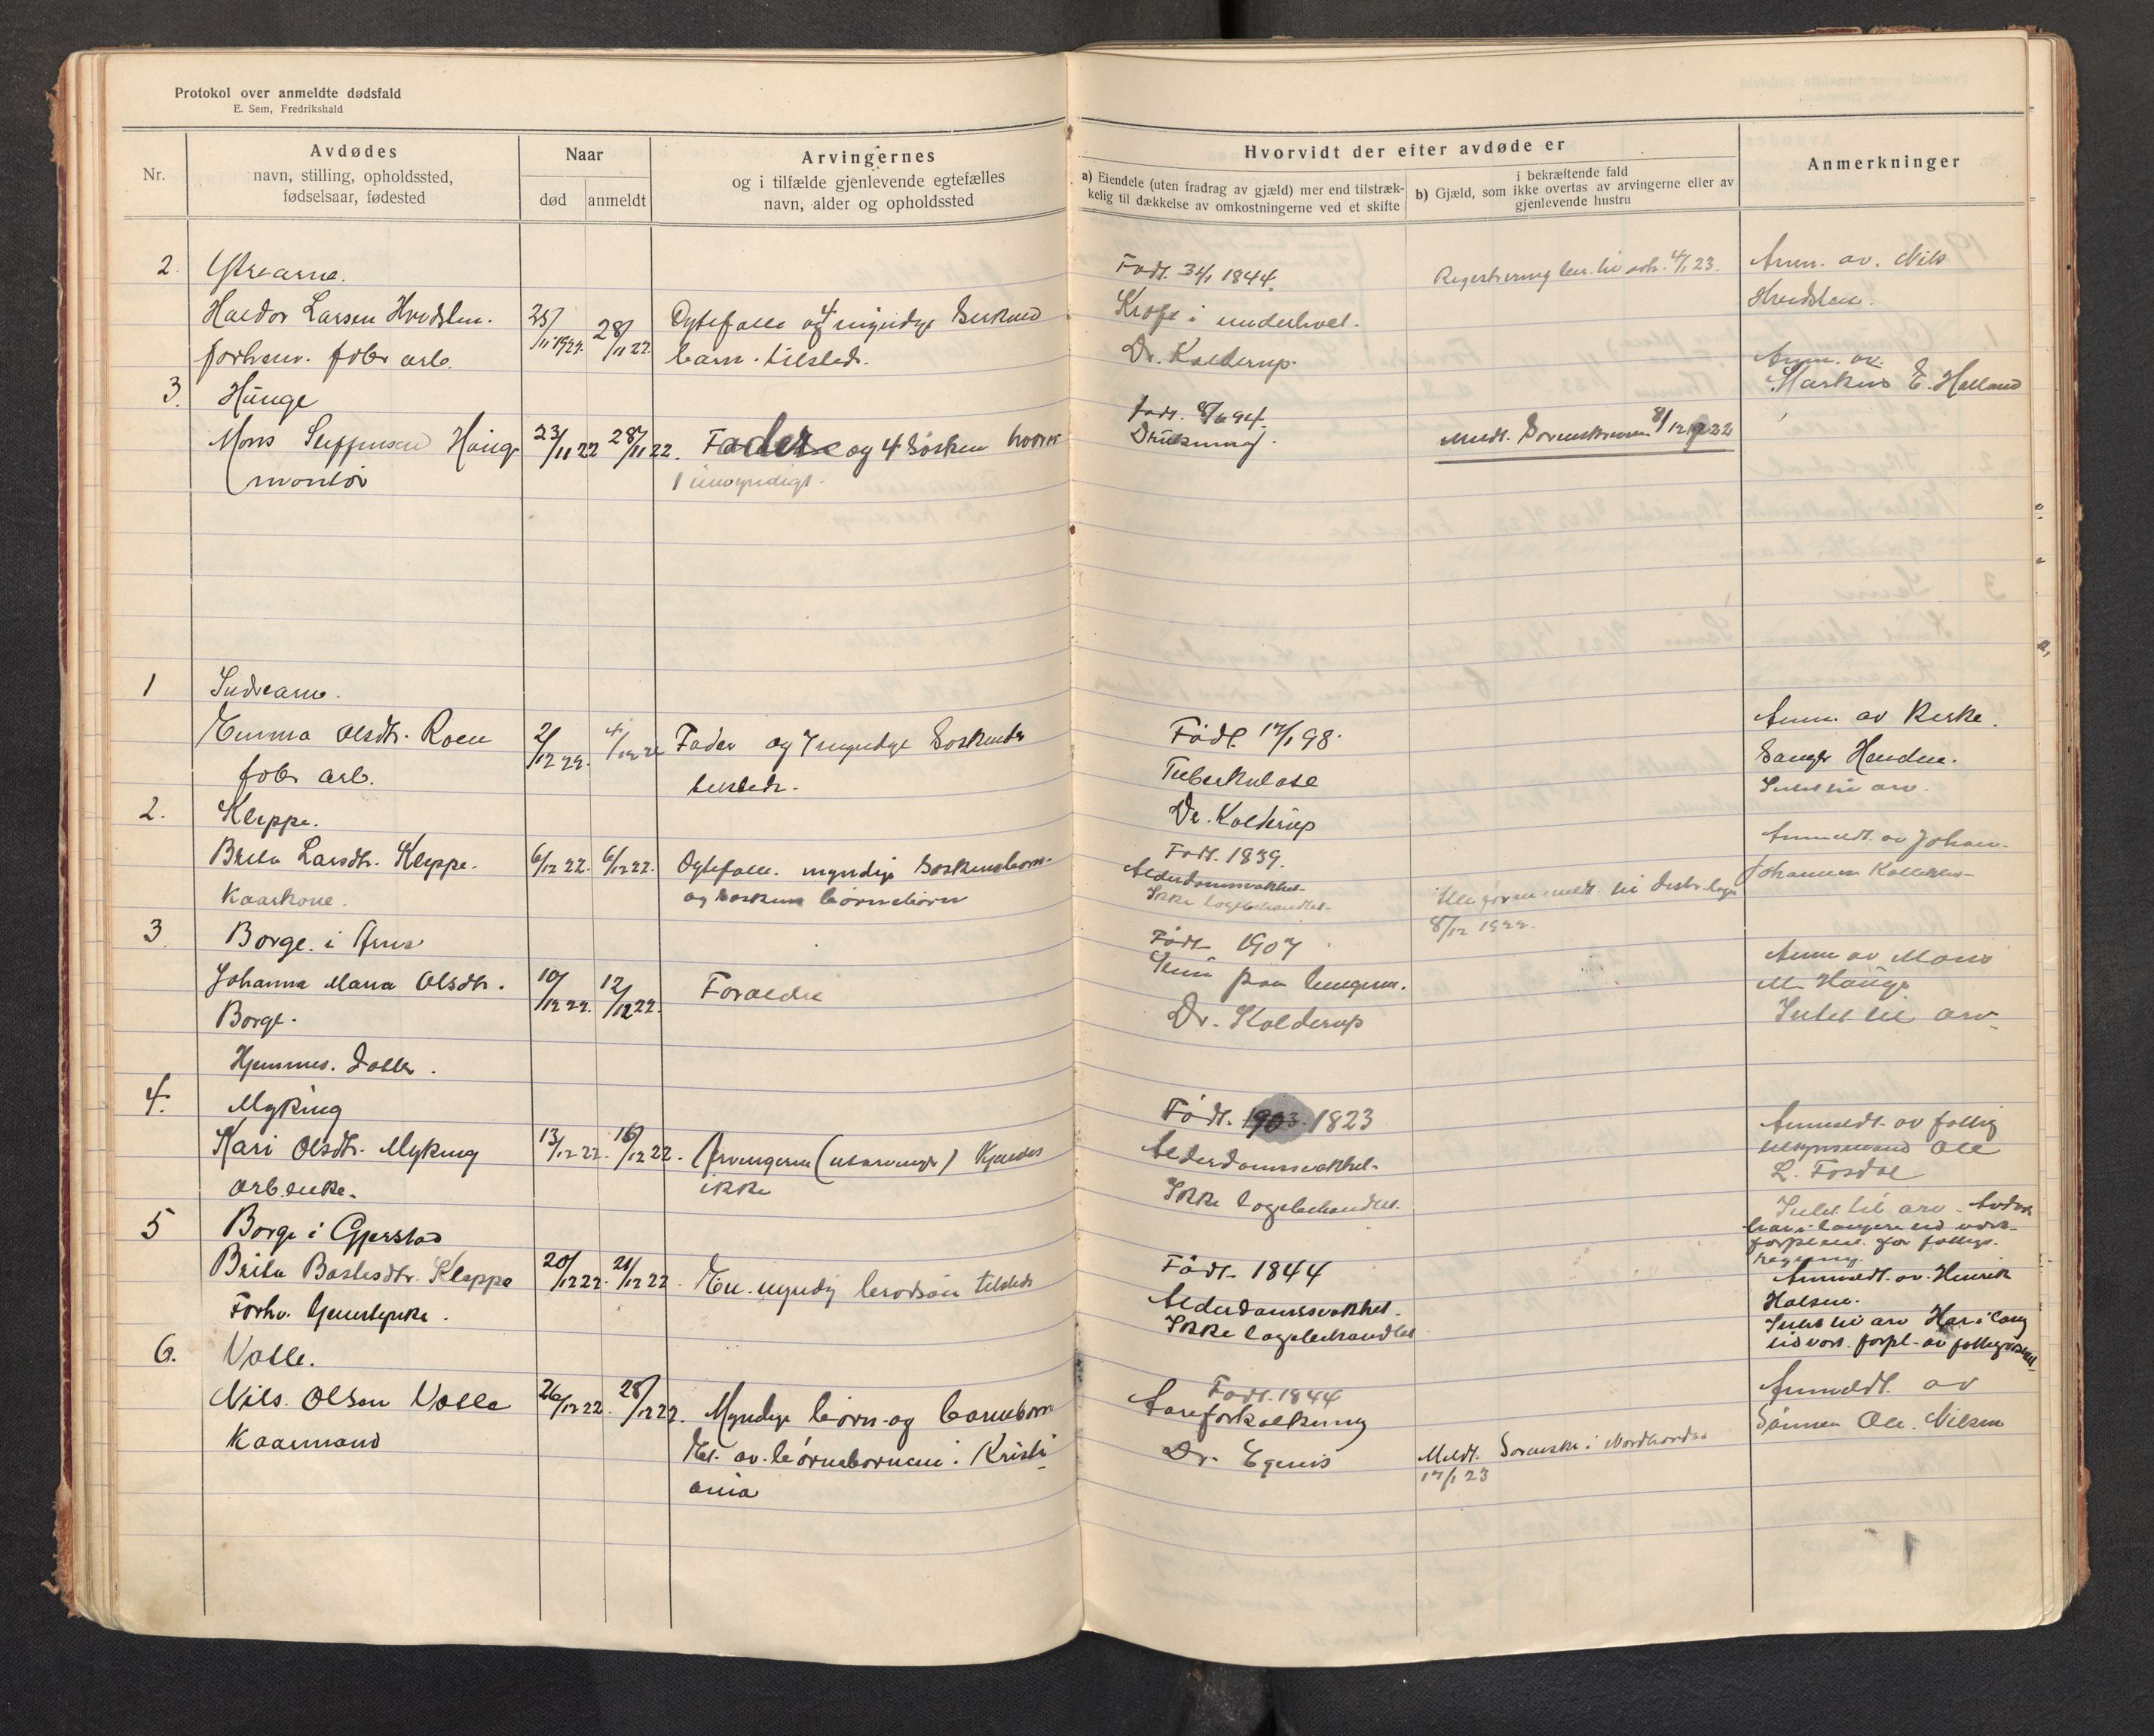 Protokol over anmeldte dødsfald
E. Sem, Fredrikshald
Nr.
Avdødes
navn, stilling, opholdssted,
fødselsaar, fødested
Naar
død
anmeldt
Arvingernes
og i tilfælde gjenlevende egtefælles
navn, alder og opholdssted
Hvorvidt der efter avdøde er
a) Eiendele (uten fradrag av gjæld) mer end tilstræk-
kelig til dækkelse av omkostningerne ved et skifte
i bekræftende fald
b) Gjæld, som ikke overtas av arvingerne eller av
gjenlevende hustru
Anmerkninger
2. Ytrearne.
Haldor Larsen Hvidsten.
forhenv. fabr arb.
25/11 1922. 28/11 22.
og 4 myndige
barn. tilsted.
Født. 3/1 1844.
Kræft i underlivet.
Dr. Kolderup.
4/1 23.
Anm. av. Nils
Hvidsten.
3. Hauge
Mons Steffensen Hauge
montør
23/11 22 28/11 22.
Fader og 4 Søsken hvorav
1 umyndigt.
Født. 8/6 94.
Drukning.
Meldt. Sorenskriveren 8/12 1922
Anm. av.
Markus E. Helland
1 Indrearne.
Emma Olsdtr. Roen
fabr arb.
2/12 22. 4/12 22
Fader og 7 myndige Søskende
tilsteds.
Født. 17/1 98.
Tuberkulose
Dr. Kolderup
Anm. av
Intet til arv.
2. Kleppe.
Brita Larsdtr. Kleppe.
Kaarkone.
6/12 22. 6/12 22.
Egtefælle. myndige Søskendebørn
og søskens børnebørn
Født. 1839.
Alderdomssvakhet.
Ikke lægebehandlet.
8/12 1922.
Anmeldt. av Johan.
Johannes
3. Borge. i Arna
Johanna Maria Olsdtr.
Borge.
Hjemmev. datter.
10/12 22. 12/12 22.
Forældre
Født 1907
paa lungerne.
Dr. Kolderup
Anm av Mons
M. Hauge
Intet til arv.
4. Myking
Kari Olsdtr. Myking
arb.enke.
13/12 22. 16/12 22.
Arvingerne (utarvinger) kjendes
ikke
Født. 1903. 1823
Alderdomssvakhet.
Ikke lægebehandlet.
Anmeldt. av fattig
tilsynsmand Ole
L. Fosdal
Intet til arv. Avdøde
har i længere tid været
forpleiet for fattigv.
regning.
5 Borge i Gjerstad
Brita Kleppe
Forhv. tjenestepike.
20/12 22. 21/12 22.
En myndig brodsøn tilsteds
Født 1844
Alderdomssvakhet.
Ikke lægebehandlet
Anmeldt. av. Henrik
Halsen.
Intet til arv Har i lang
tid vært forpl. av fattigvæsenet
6. Valle.
Nils. Olsen Valle
Kaarmand
26/12 22. 28/12 22.
Myndige børn og barnebørn
Et. av. børnebørnene i Kristi-
ania
Født. 1844
Aareforkalkning
Dr. Egenes
Meldt. Sorenskr. i Nordhordland
17/1 23
Anmeldt. av
Sønnen Ole. Nilsen